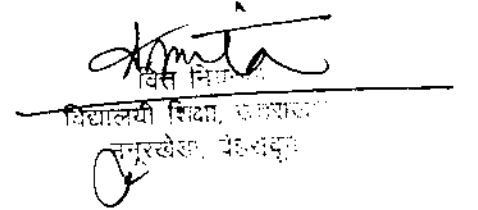 Amita
वित्त नियन्त्रक
विद्यालयी शिक्षा, उत्तराखण्ड
ननूरखेडा, देहरादून